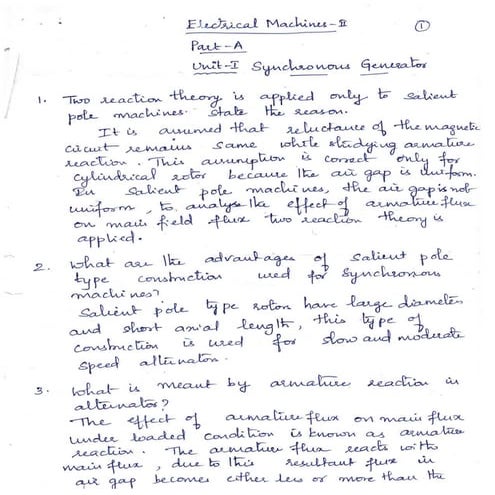 Electrical Machines-II
1
Part-A
Unit-I Synchronous Generator
1. Two reaction theory is applied only to salient
pole machines. State the reason.
It is assumed that reluctance of the magnetic
circuit remains same while studying armature
reaction. This assumption is correct only for
cylindrical rotor because the air gap is uniform.
In salient pole machines, the air gap is not
uniform, to analyse the effect of armature flux
on main field flux two reaction theory is
applied.
2. What are the advantages of salient pole
type construction used for synchronous
machines?
Salient pole type rotors have large diameter
and short axial length, this type of
construction is used for slow and moderate
speed alternators.
3. What is meant by armature reaction in
alternator?
The effect of armature flux on main flux
under loaded condition is known as armature
reaction. The armature flux reacts with
main flux, due to this resultant flux in
air gap becomes either less or more than the